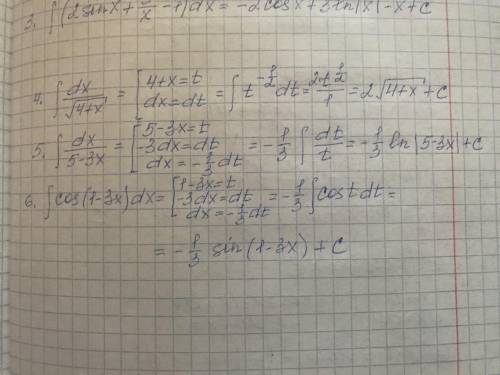 3. ∫(2sinx + 3/x - 1)dx = -2cosx + 3ln|x| - x + C
4. ∫ dx/√(4+x) = [4+x=t dx=dt = ∫ t^(-1/2) dt = 2t^(1/2)/1 = 2√(4+x) + C
5. ∫ dx/(5-3x) = [5-3x=t -3dx=dt dx=-1/3 dt = -1/3 ∫ dt/t = -1/3 ln|5-3x| + C
6. ∫cos(1-3x)dx = [1-3x=t -3dx=dt dx=-1/3 dt = -1/3 ∫cost dt =
= -1/3 sin(1-3x) + C